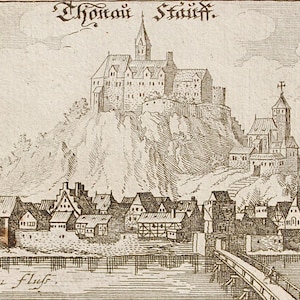 Thonaü Stäüff.
flus.